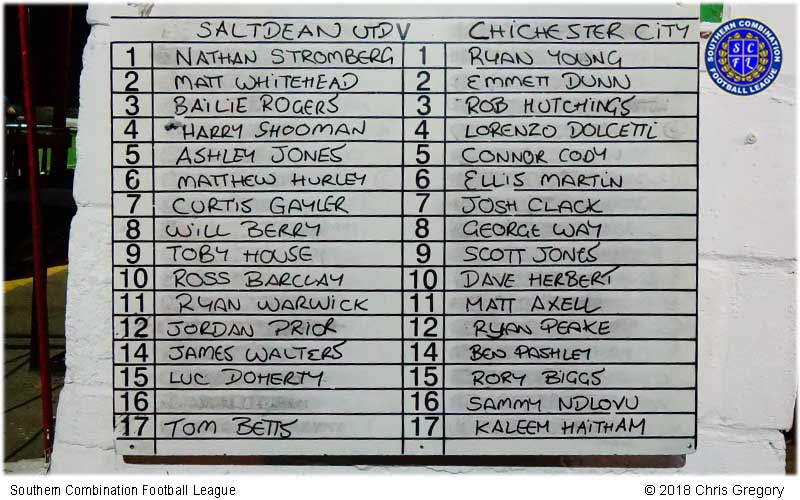 SALTDEAN UTD V CHICHESTER CITY
1 NATHAN STROMBERG 1 RYAN YOUNG
2 MATT WHITEHEAD 2 EMMETT DUNN
3 BAILIE ROGERS 3 ROB HUTCHINGS
4 HARRY SHOOMAN 4 LORENZO DOLCETTI
5 ASHLEY JONES 5 CONNOR CODY
6 MATTHEW HURLEY 6 ELLIS MARTIN
7 CURTIS GAYLER 7 JOSH CLACK
8 WILL BERRY 8 GEORGE WAY
9 TOBY HOUSE 9 SCOTT JONES
10 ROSS BARCLAY 10 DAVE HERBERT
11 RYAN WARWICK 11 MATT AXELL
12 JORDAN PRIOR 12 RYAN PEAKE
14 JAMES WALTERS 14 BEN PASHLEY
15 LUC DOHERTY 15 RORY BIGGS
16 16 SAMMY NDLOVU
17 TOM BETTS 17 KALEEM HAITHAM
SOUTHERN COMBINATION
SCFL
FOOTBALL LEAGUE
Southern Combination Football League © 2018 Chris Gregory